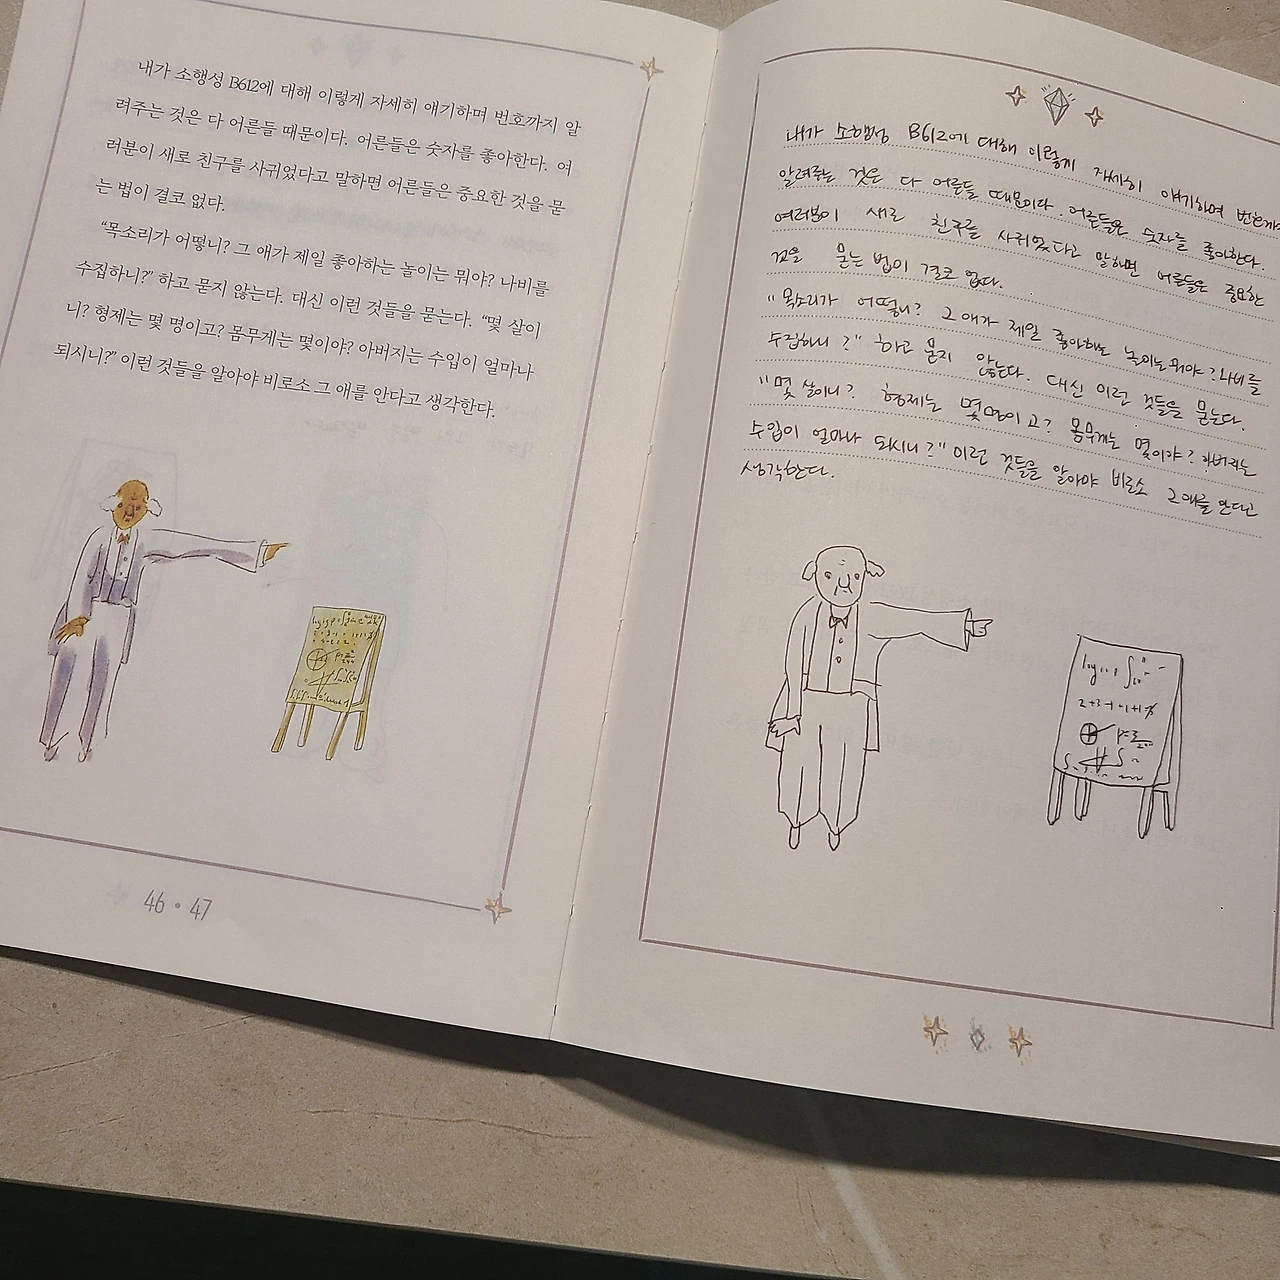 내가 소행성 B612에 대해 이렇게 자세히 얘기하며 번호까지 알
려주는 것은 다 어른들 때문이다. 어른들은 숫자를 좋아한다. 여
러분이 새로 친구를 사귀었다고 말하면 어른들은 중요한 것을 묻
는 법이 결코 없다.
“목소리가 어떻니? 그 애가 제일 좋아하는 놀이는 뭐야? 나비를
수집하니?” 하고 묻지 않는다. 대신 이런 것들을 묻는다. “몇 살이
니? 형제는 몇 명이고? 몸무게는 몇이야? 아버지는 수입이 얼마나
되시니?” 이런 것들을 알아야 비로소 그 애를 안다고 생각한다.
46 • 47
내가 소행성 B612에 대해 이렇게 자세히 얘기하며 번호까지
알려주는 것은 다 어른들 때문이다. 어른들은 숫자를 좋아한다.
여러분이 새로 친구를 사귀었다고 말하면 어른들은 중요한
것을 묻는 법이 결코 없다.
"목소리가 어떻니? 그 애가 제일 좋아하는 놀이는 뭐야? 나비를
수집하니?" 하고 묻지 않는다. 대신 이런 것들을 묻는다.
"몇 살이니? 형제는 몇명이고? 몸무게는 몇이야? 아버지는
수입이 얼마나 되시니?" 이런 것들을 알아야 비로소 그 애를 안다고
생각한다.